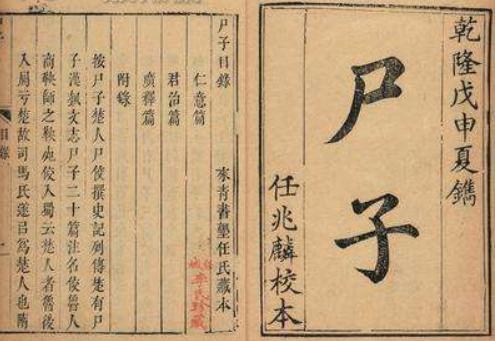 乾隆戊申夏鐫
尸子
任兆麟校本
尸子目錄
來青書塾任氏藏本
仁意篇
君治篇
廣釋篇
附錄
按尸子楚人尸佼撰史記列傳楚有尸
子漢藝文志尸子二十篇注名佼魯人
商鞅師之鞅死佼入蜀云楚人者魯後
入屬于楚故司馬氏遂㠯爲楚人也隋
目錄